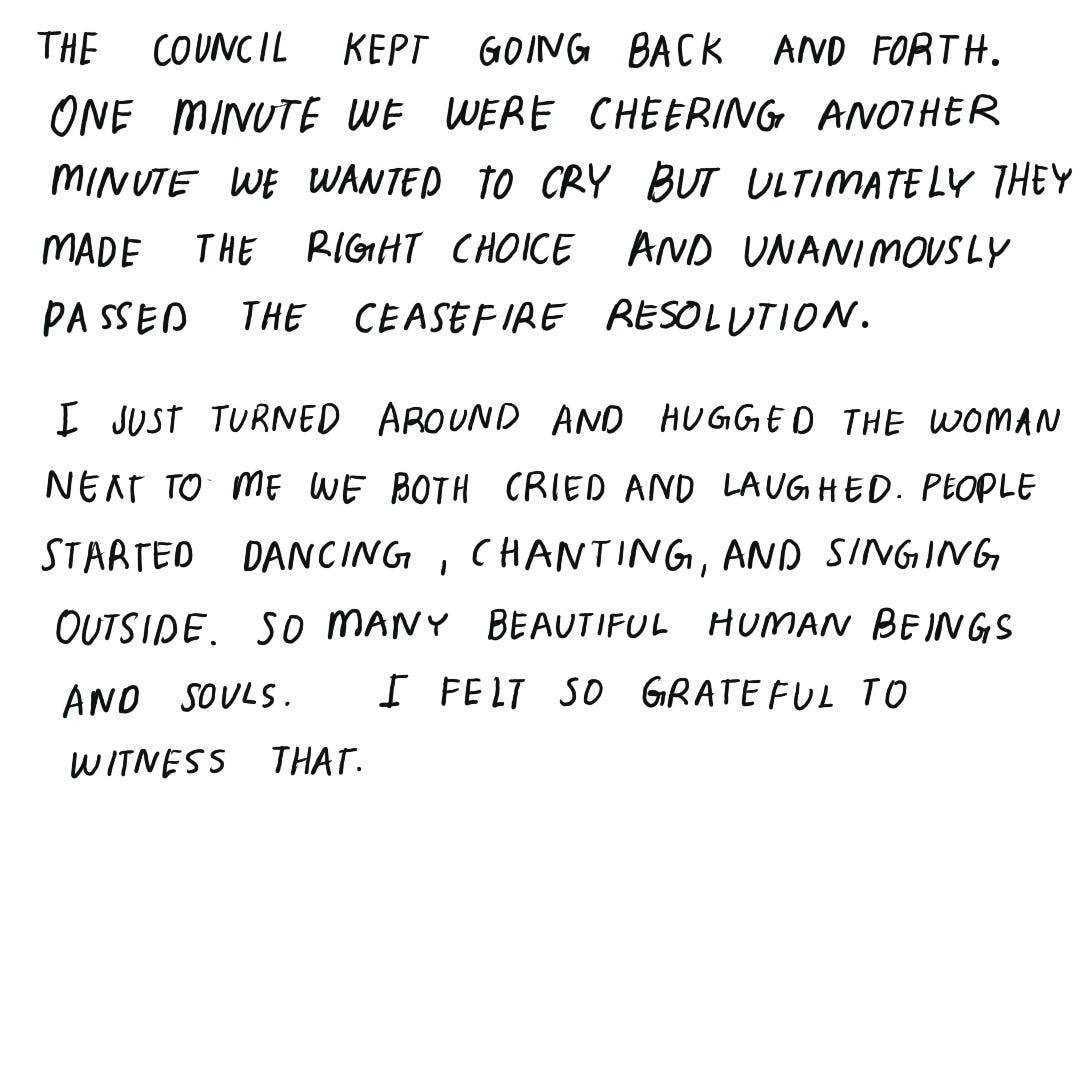 THE COUNCIL KEPT GOING BACK AND FORTH.
ONE MINUTE WE WERE CHEERING ANOTHER
MINUTE WE WANTED TO CRY BUT ULTIMATELY THEY
MADE THE RIGHT CHOICE AND UNANIMOUSLY
PASSED THE CEASEFIRE RESOLUTION.
I JUST TURNED AROUND AND HUGGED THE WOMAN
NEXT TO ME WE BOTH CRIED AND LAUGHED. PEOPLE
STARTED DANCING, CHANTING, AND SINGING
OUTSIDE. SO MANY BEAUTIFUL HUMAN BEINGS
AND SOULS. I FELT SO GRATEFUL TO
WITNESS THAT.